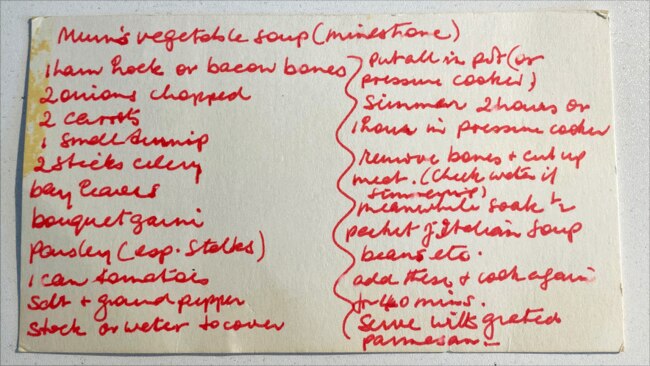 Mum's vegetable soup (minestrone)
1 ham hock or bacon bones
2 onions chopped
2 carrots
1 small turnip
2 sticks celery
bay leaves
bouquet garni
Parsley (esp. Stalks)
1 can tomatoes
Salt + ground pepper
Stock or water to cover
put all in pot (or
pressure cooker)
Simmer 2 hours or
1 hour in pressure cooker
remove bones + cut up
meat. (Check water if
simmering)
meanwhile soak ½
packet of Italian soup
beans etc.
add these + cook again
for 40 mins.
Serve with grated
parmesan